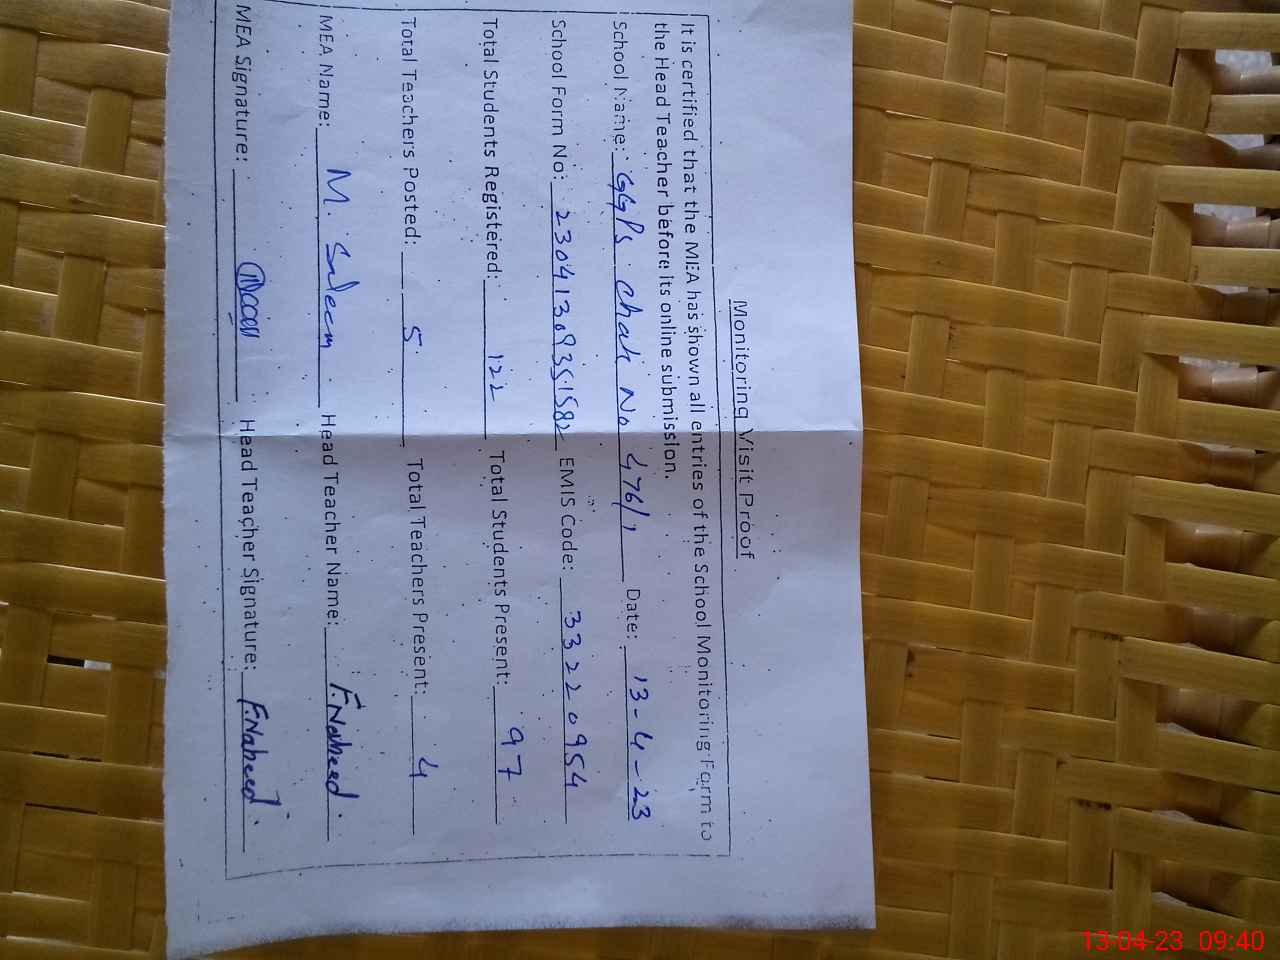 Monitoring Visit Proof
It is certified that the MEA has shown all entries of the School Monitoring Form to
the Head Teacher before its online submission.
School Name: GGPS chak No 476/1 Date: 13-4-23
School Form No: 23041309351582 EMIS Code: 33220954
Total Students Registered: 122 Total Students Present: 97
Total Teachers Posted: 5 Total Teachers Present: 4
MEA Name: M. Saleem Head Teacher Name: F.Naheed
MEA Signature: Head Teacher Signature: F.Naheed
13-04-23 09:40